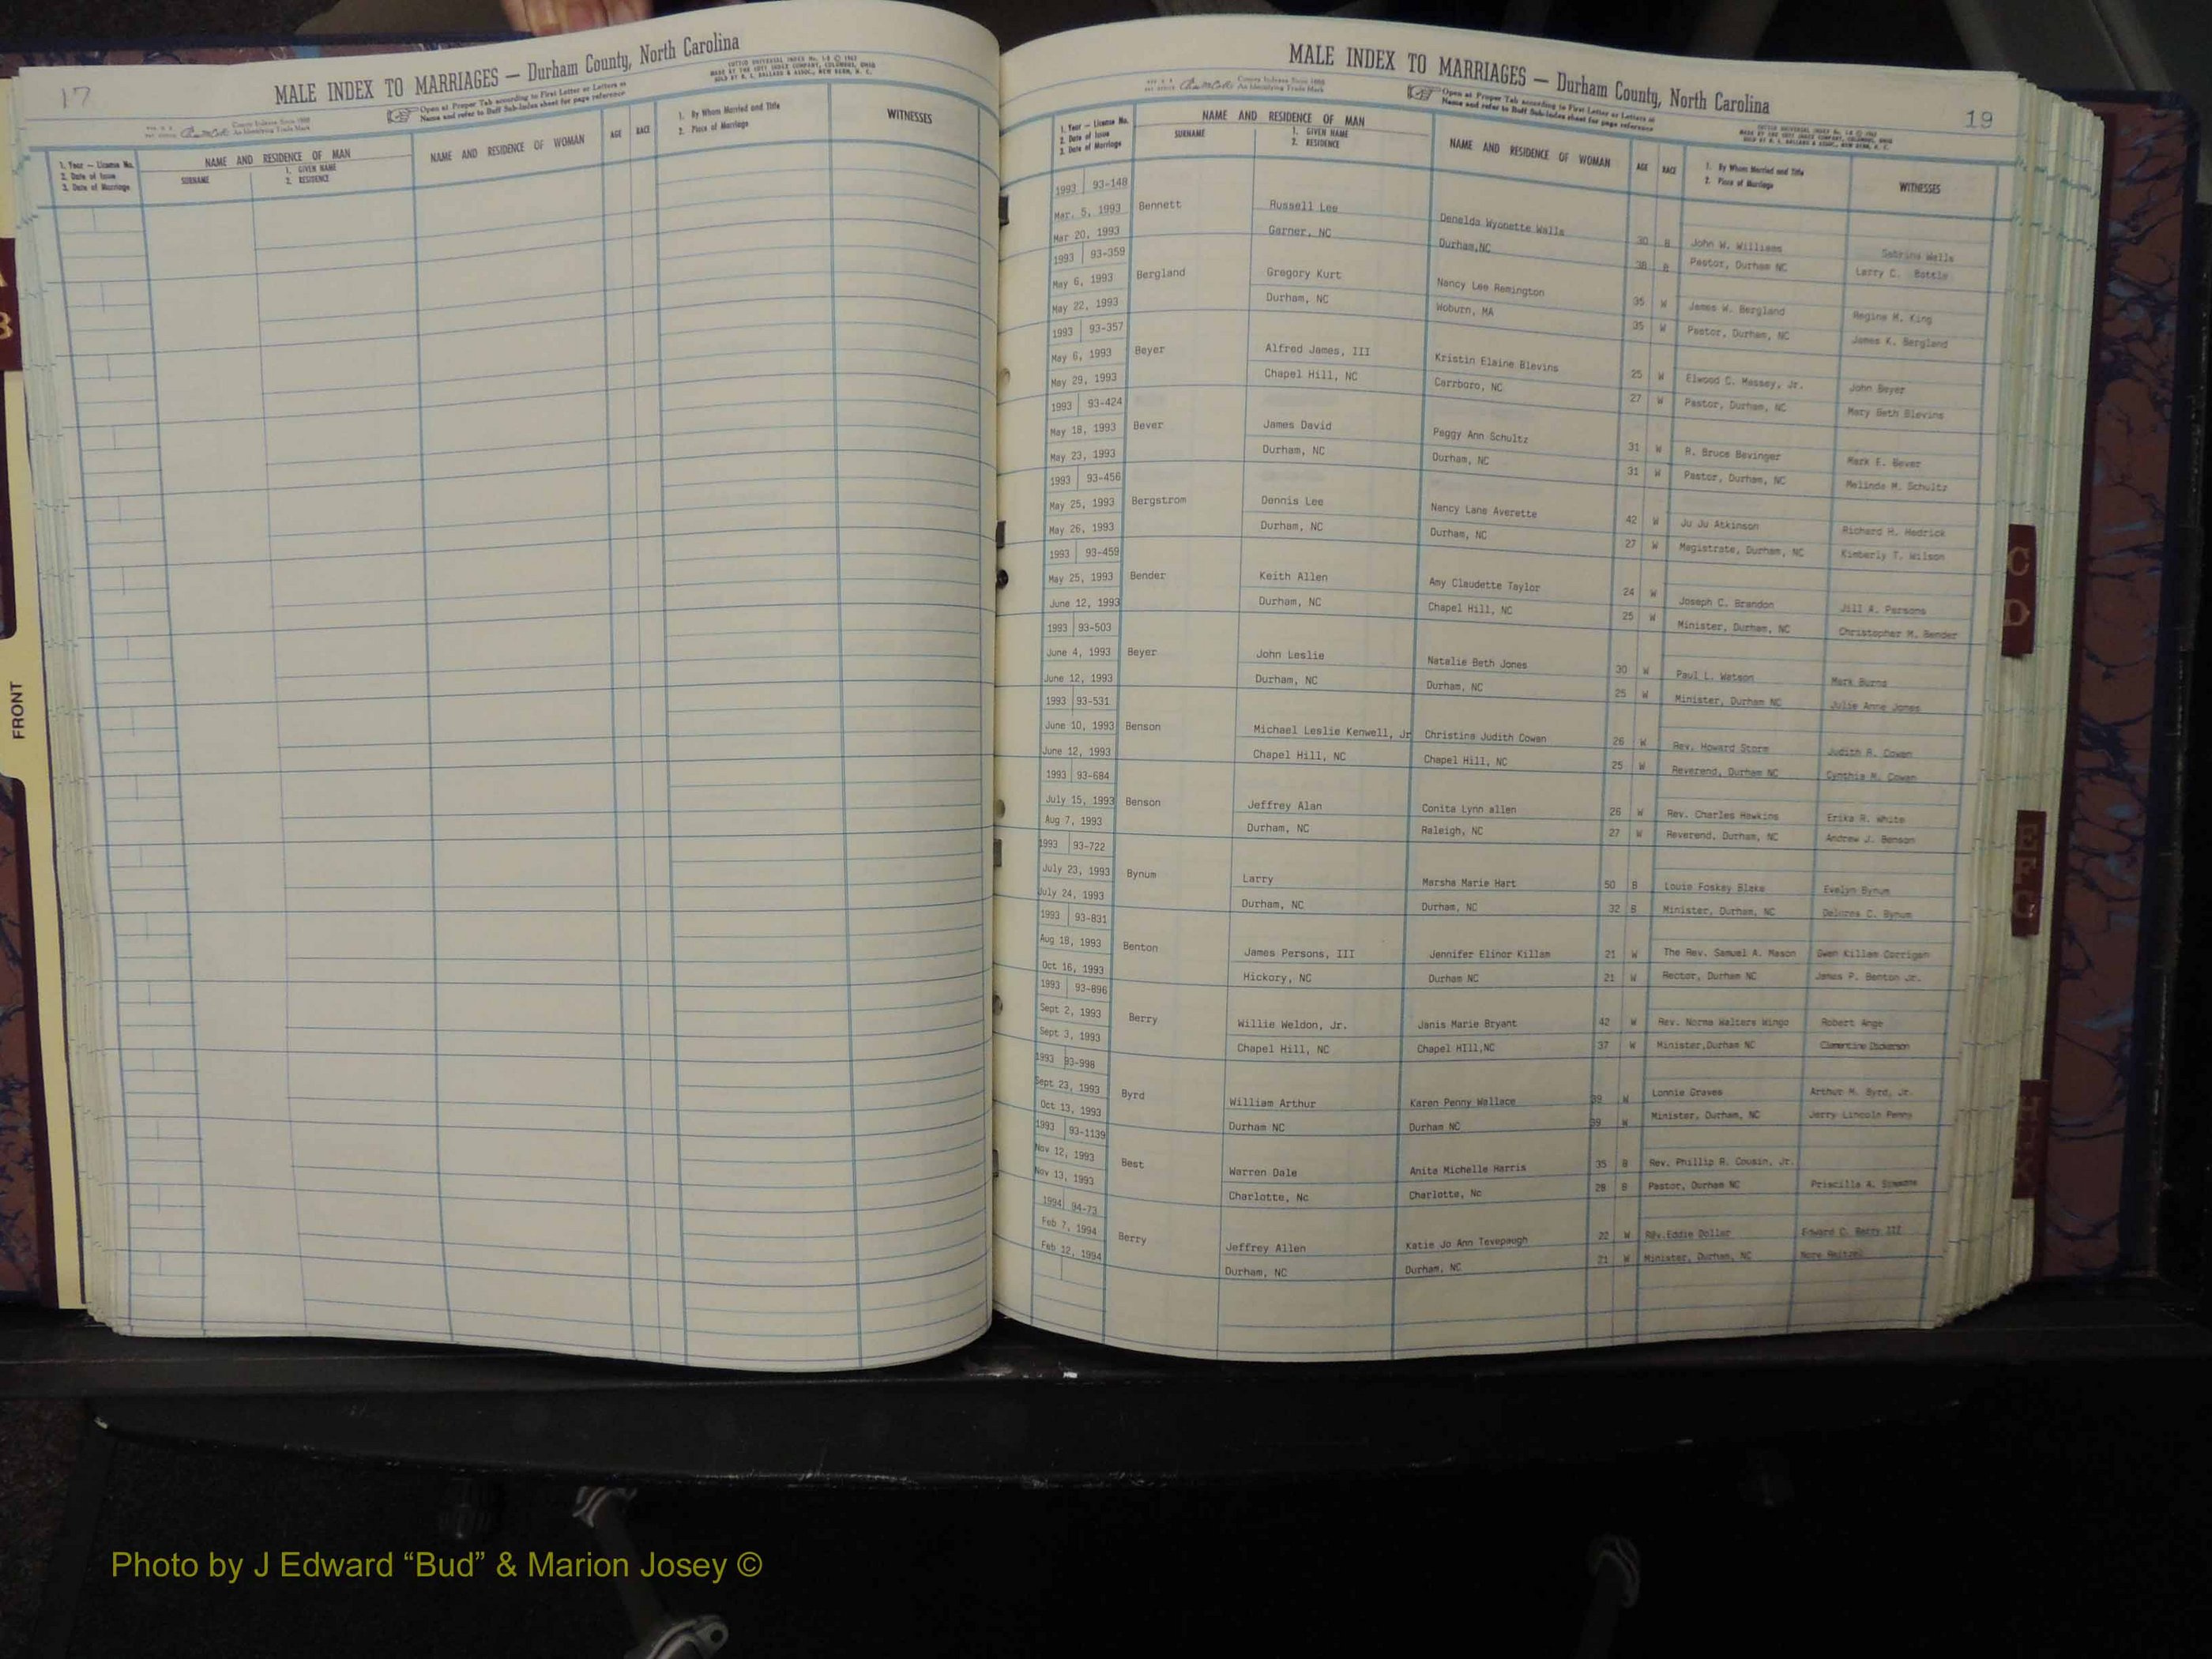 17
MALE INDEX TO MARRIAGES — Durham County, North Carolina
Open at Proper Tab according to First Letter or Letters of
Name and refer to Buff Sub-Index sheet for page reference
1. Year — License No.
2. Date of Issue
3. Date of Marriage
NAME AND RESIDENCE OF MAN
SURNAME
1. GIVEN NAME
2. RESIDENCE
NAME AND RESIDENCE OF WOMAN
AGE
RACE
1. By Whom Married and Title
2. Place of Marriage
WITNESSES
FRONT
MALE INDEX TO MARRIAGES — Durham County, North Carolina
19
Open at Proper Tab according to First Letter or Letters of
Name and refer to Buff Sub-Index sheet for page reference
1. Year — License No.
2. Date of Issue
3. Date of Marriage
NAME AND RESIDENCE OF MAN
SURNAME
1. GIVEN NAME
2. RESIDENCE
NAME AND RESIDENCE OF WOMAN
AGE
RACE
1. By Whom Married and Title
2. Place of Marriage
WITNESSES
1993 93-148
Mar. 5, 1993 Bennett Russell Lee Denelda Wyonette Walls 30 B John W. Williams Sabrina Wells
Mar 20, 1993 Garner, NC Durham,NC 38 B Pastor, Durham NC Larry C. Battle
1993 93-359
May 6, 1993 Bergland Gregory Kurt Nancy Lee Remington 35 W James W. Bergland Regina M. King
May 22, 1993 Durham, NC Woburn, MA 35 W Pastor, Durham, NC James K. Bergland
1993 93-357
May 6, 1993 Beyer Alfred James, III Kristin Elaine Blevins 25 W Elwood C. Massey, Jr. John Beyer
May 29, 1993 Chapel Hill, NC Carrboro, NC 27 W Pastor, Durham, NC Mary Beth Blevins
1993 93-424
May 18, 1993 Bever James David Peggy Ann Schultz 31 W R. Bruce Bevinger Mark E. Bever
May 23, 1993 Durham, NC Durham, NC 31 W Pastor, Durham, NC Melinda M. Schultz
1993 93-456
May 25, 1993 Bergstrom Dennis Lee Nancy Lane Averette 42 W Ju Ju Atkinson Richard H. Hedrick
May 26, 1993 Durham, NC Durham, NC 27 W Magistrate, Durham, NC Kimberly T. Wilson
1993 93-459
May 25, 1993 Bender Keith Allen Amy Claudette Taylor 24 W Joseph C. Brandon Jill A. Parsons
June 12, 1993 Durham, NC Chapel Hill, NC 25 W Minister, Durham, NC Christopher M. Bender
1993 93-503
June 4, 1993 Beyer John Leslie Natalie Beth Jones 30 W Paul L. Watson Mark Burns
June 12, 1993 Durham, NC Durham, NC 25 W Minister, Durham NC Julie Anne Jones
1993 93-531
June 10, 1993 Benson Michael Leslie Kenwell, Jr Christina Judith Cowan 26 W Rev. Howard Storm Judith R. Cowan
June 12, 1993 Chapel Hill, NC Chapel Hill, NC 25 W Reverend, Durham NC Cynthia M. Cowan
1993 93-684
July 15, 1993 Benson Jeffrey Alan Conita Lynn allen 26 W Rev. Charles Hawkins Erika R. White
Aug 7, 1993 Durham, NC Raleigh, NC 27 W Reverend, Durham, NC Andrew J. Benson
1993 93-722
July 23, 1993 Bynum Larry Marsha Marie Hart 50 B Louie Foskey Blake Evelyn Bynum
July 24, 1993 Durham, NC Durham, NC 32 B Minister, Durham, NC Delores C. Bynum
1993 93-831
Aug 18, 1993 Benton James Persons, III Jennifer Elinor Killam 21 W The Rev. Samuel A. Mason Gwen Killam Corrigan
Oct 16, 1993 Hickory, NC Durham NC 21 W Rector, Durham NC James P. Benton Jr.
1993 93-896
Sept 2, 1993 Berry Willie Weldon, Jr. Janis Marie Bryant 42 W Rev. Norma Walters Wingo Robert Ange
Sept 3, 1993 Chapel Hill, NC Chapel HIll,NC 37 W Minister,Durham NC Clementine Dickerson
1993 93-998
Sept 23, 1993 Byrd William Arthur Karen Penny Wallace 39 W Lonnie Graves Arthur M. Byrd, Jr.
Oct 13, 1993 Durham NC Durham NC 39 W Minister, Durham, NC Jerry Lincoln Penny
1993 93-1139
Nov 12, 1993 Best Warren Dale Anita Michelle Harris 35 B Rev. Phillip R. Cousin, Jr.
Nov 13, 1993 Charlotte, Nc Charlotte, Nc 28 B Pastor, Durham NC Priscilla A. Simmons
1994 94-73
Feb 7, 1994 Berry Jeffrey Allen Katie Jo Ann Tevepaugh 22 W Rev.Eddie Dollar Edward C. Berry III
Feb 12, 1994 Durham, NC Durham, NC 21 W Minister, Durham, NC
C
D
E
F
G
Photo by J Edward “Bud” & Marion Josey ©